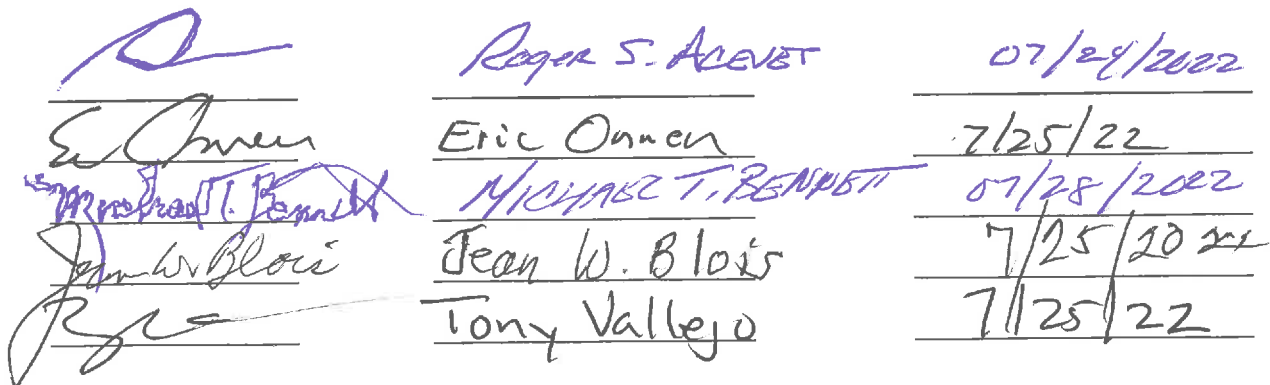 Roger S. Acevet 07/24/2022
Eric Onnen 7/25/22
Michael T. Bennett MICHAEL T. BENNETT 07/28/2022
Jean W Blois Jean W. Blois 7/25/2022
Tony Vallejo 7/25/22